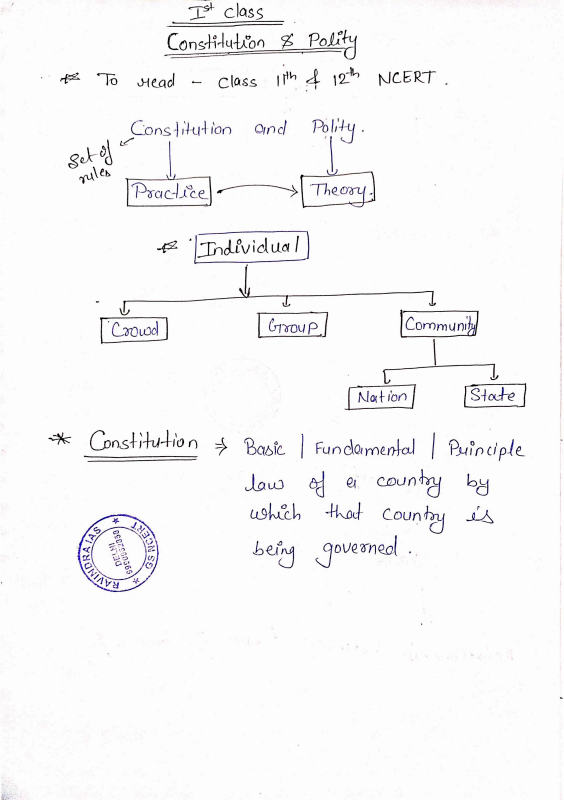 Ist class
Constitution & Polity
* To read - class 11th & 12th NCERT.
Constitution and Polity.
Set of
rules
Practice
Theory.
* Individual
Crowd
Group
Community
Nation
State
* Constitution ⇒ Basic | Fundamental | Principle
law of a country by
which that country is
being governed.
RAVINDRA IAS
DELHI